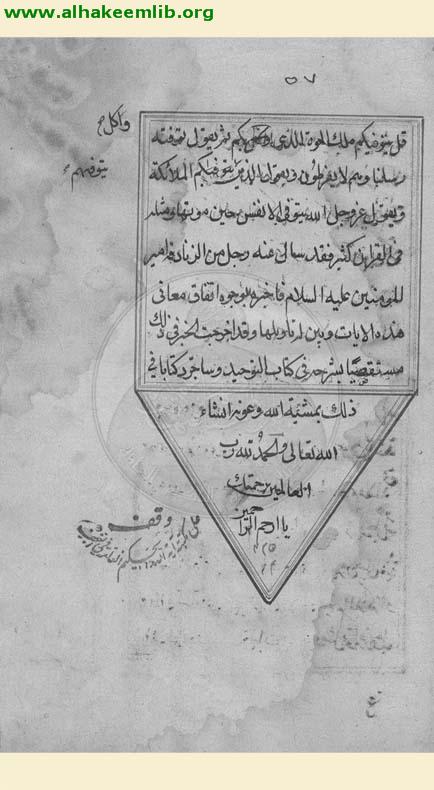 www.alhakeemlib.org
٥٧
وكل
يتوفيهم
قل يتوفيكم ملك الموت الذي وكل بكم ثم يقول توفته
رسلنا وهم لا يفرطون ويقول الذين تتوفيهم الملائكة
ويقول عز وجل الله يتوفى الانفس حين موتها ومثله
في القران كثير فقد سال عنه رجل من الزنادقة امير
المومنين عليه السلام فاخبره بوجوه اتفاق معاني
هذه الايات وبين له تاويلها وقد اخرجت الخبر في ذلك
مستقصيا بشرحه في كتاب التوحيد وساجرد كتابا في
ذلك بمشية الله وعونه انشاء
الله تعالى والحمد لله رب
العالمين برحمتك
يا ارحم الراحمين
وقف